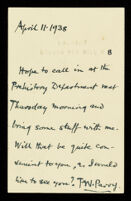 April 11. 1938
8
Hope to call in at the
Prehistory Department next
Thursday morning and
bring some stuff with me.
Will that be quite con-
venient to you, as I would
like to see you?